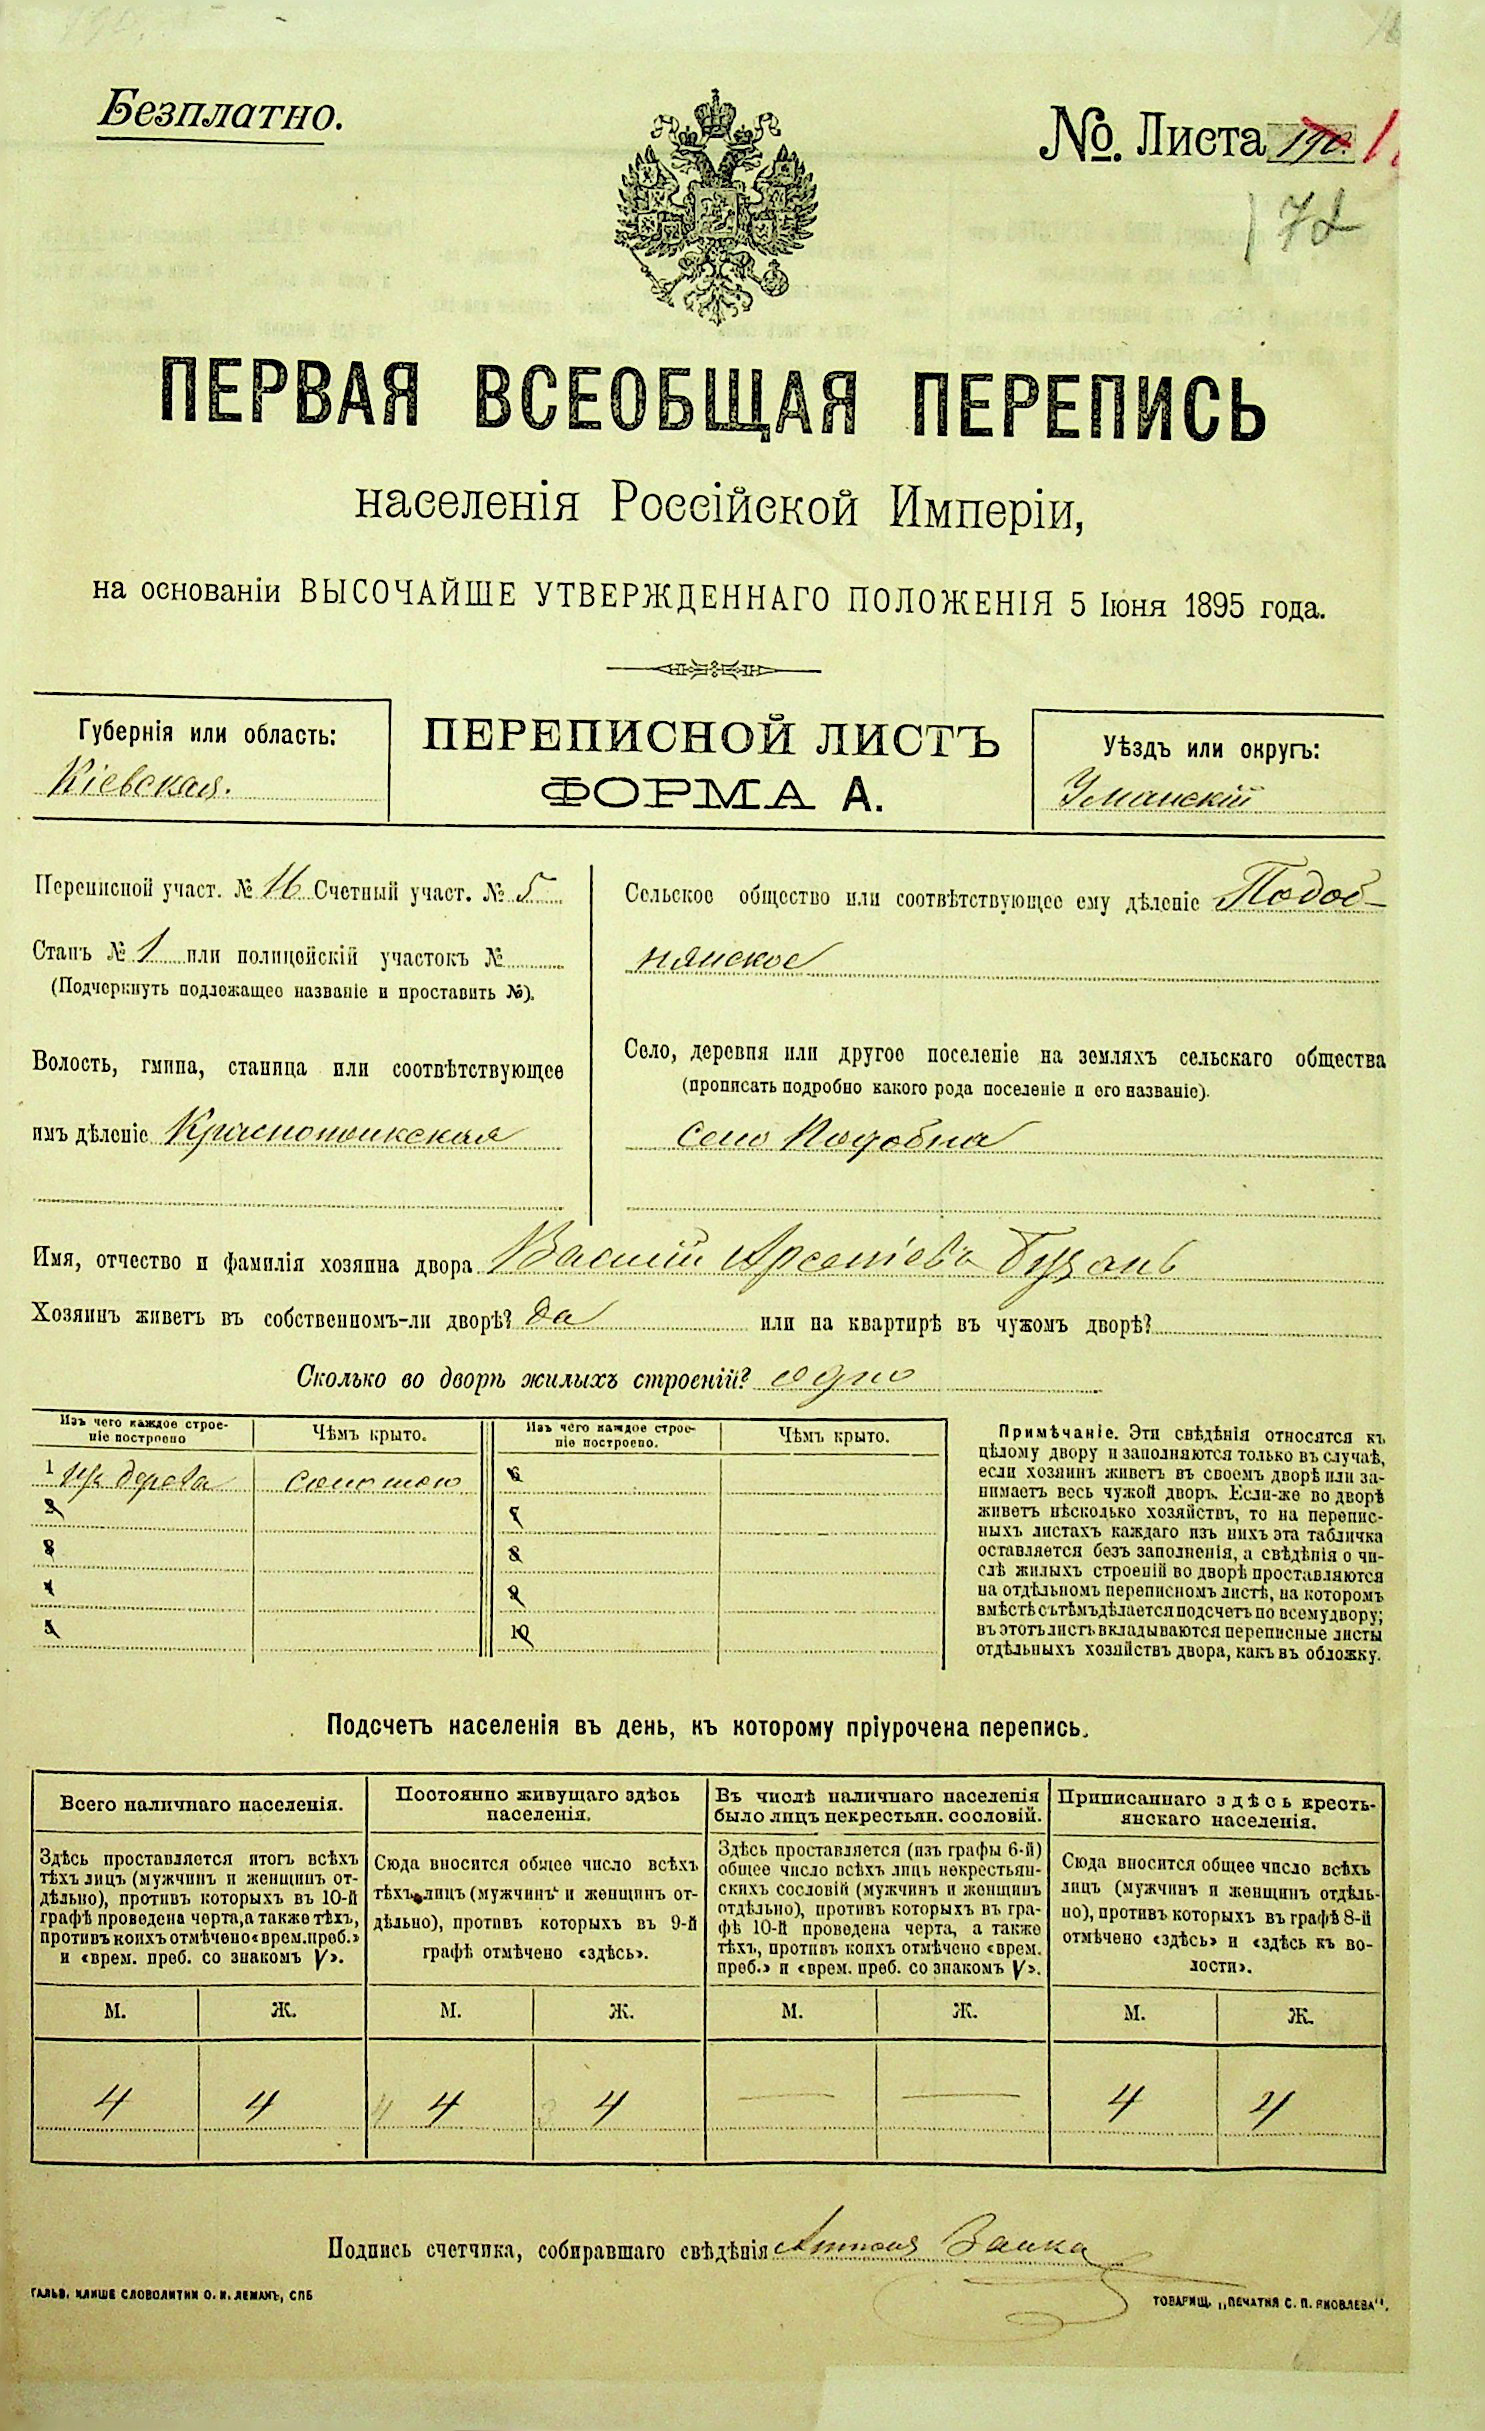 Безплатно.
№. Листа 190.
172
ПЕРВАЯ ВСЕОБЩАЯ ПЕРЕПИСЬ
населенія Россійской Имперіи,
на основаніи ВЫСОЧАЙШЕ УТВЕРЖДЕННАГО ПОЛОЖЕНІЯ 5 Іюня 1895 года.
Губернія или область:
Кіевская.
ПЕРЕПИСНОЙ ЛИСТЪ
ФОРМА А.
Уѣздъ или округъ:
Уманскій
Переписной участ. № 16 Счетный участ. № 5
Станъ № 1 или полицейскій участокъ №
(Подчеркнуть подлежащее названіе и проставить №).
Волость, гмина, станица или соотвѣтствующее
имъ дѣленіе Краснопольская
Сельское общество или соотвѣтствующее ему дѣленіе Подоб-
нянское
Село, деревня или другое поселеніе на земляхъ сельскаго общества
(прописать подробно какого рода поселеніе и его названіе).
село Подобна
Имя, отчество и фамилія хозяина двора Василій Арсеніевъ
Хозяинъ живетъ въ собственномъ-ли дворѣ? да или на квартирѣ въ чужомъ дворѣ?
Сколько во дворѣ жилыхъ строеній? одно
Изъ чего каждое строе-
ніе построено
Чѣмъ крыто.
Изъ чего каждое строе-
ніе построено.
Чѣмъ крыто.
1 изъ дерева соломою
2
3
4
5
6
7
8
9
10
Примѣчаніе. Эти свѣдѣнія относятся къ
цѣлому двору и заполняются только въ случаѣ,
если хозяинъ живетъ въ своемъ дворѣ или за-
нимаетъ весь чужой дворъ. Если-же во дворѣ
живетъ нѣсколько хозяйствъ, то на перепис-
ныхъ листахъ каждаго изъ нихъ эта табличка
оставляется безъ заполненія, а свѣдѣнія о чи-
слѣ жилыхъ строеній во дворѣ проставляются
на отдѣльномъ переписномъ листѣ, на которомъ
вмѣстѣ съ тѣмъ дѣлается подсчетъ по всему двору;
въ этотъ листъ вкладываются переписные листы
отдѣльныхъ хозяйствъ двора, какъ въ обложку.
Подсчетъ населенія въ день, къ которому пріурочена перепись.
Всего наличнаго населенія.
Здѣсь проставляется итогъ всѣхъ
тѣхъ лицъ (мужчинъ и женщинъ от-
дѣльно), противъ которыхъ въ 10-й
графѣ проведена черта, а также тѣхъ,
противъ коихъ отмѣчено «врем. преб.»
и «врем. преб. со знакомъ V».
Постоянно живущаго здѣсь
населенія.
Сюда вносится общее число всѣхъ
тѣхъ лицъ (мужчинъ и женщинъ от-
дѣльно), противъ которыхъ въ 9-й
графѣ отмѣчено «здѣсь».
Въ числѣ наличнаго населенія
было лицъ некрестьян. сословій.
Здѣсь проставляется (изъ графы 6-й)
общее число всѣхъ лицъ некрестьян-
скихъ сословій (мужчинъ и женщинъ
отдѣльно), противъ которыхъ въ гра-
фѣ 10-й проведена черта, а также
тѣхъ, противъ коихъ отмѣчено «врем.
преб.» и «врем. преб. со знакомъ V».
Приписаннаго здѣсь кресть-
янскаго населенія.
Сюда вносится общее число всѣхъ
лицъ (мужчинъ и женщинъ отдѣль-
но), противъ которыхъ въ графѣ 8-й
отмѣчено «здѣсь» и «здѣсь къ во-
лости».
М. Ж. М. Ж. М. Ж. М. Ж.
4 4 4 4 — — 4 4
Подпись счетчика, собиравшаго свѣдѣнія Заика
ГАЛЬВ. КЛИШЕ СЛОВОЛИТНИ О. И. ЛЕМАНЪ, СПБ
ТОВАРИЩ. „ПЕЧАТНЯ С. П. ЯКОВЛЕВА“.